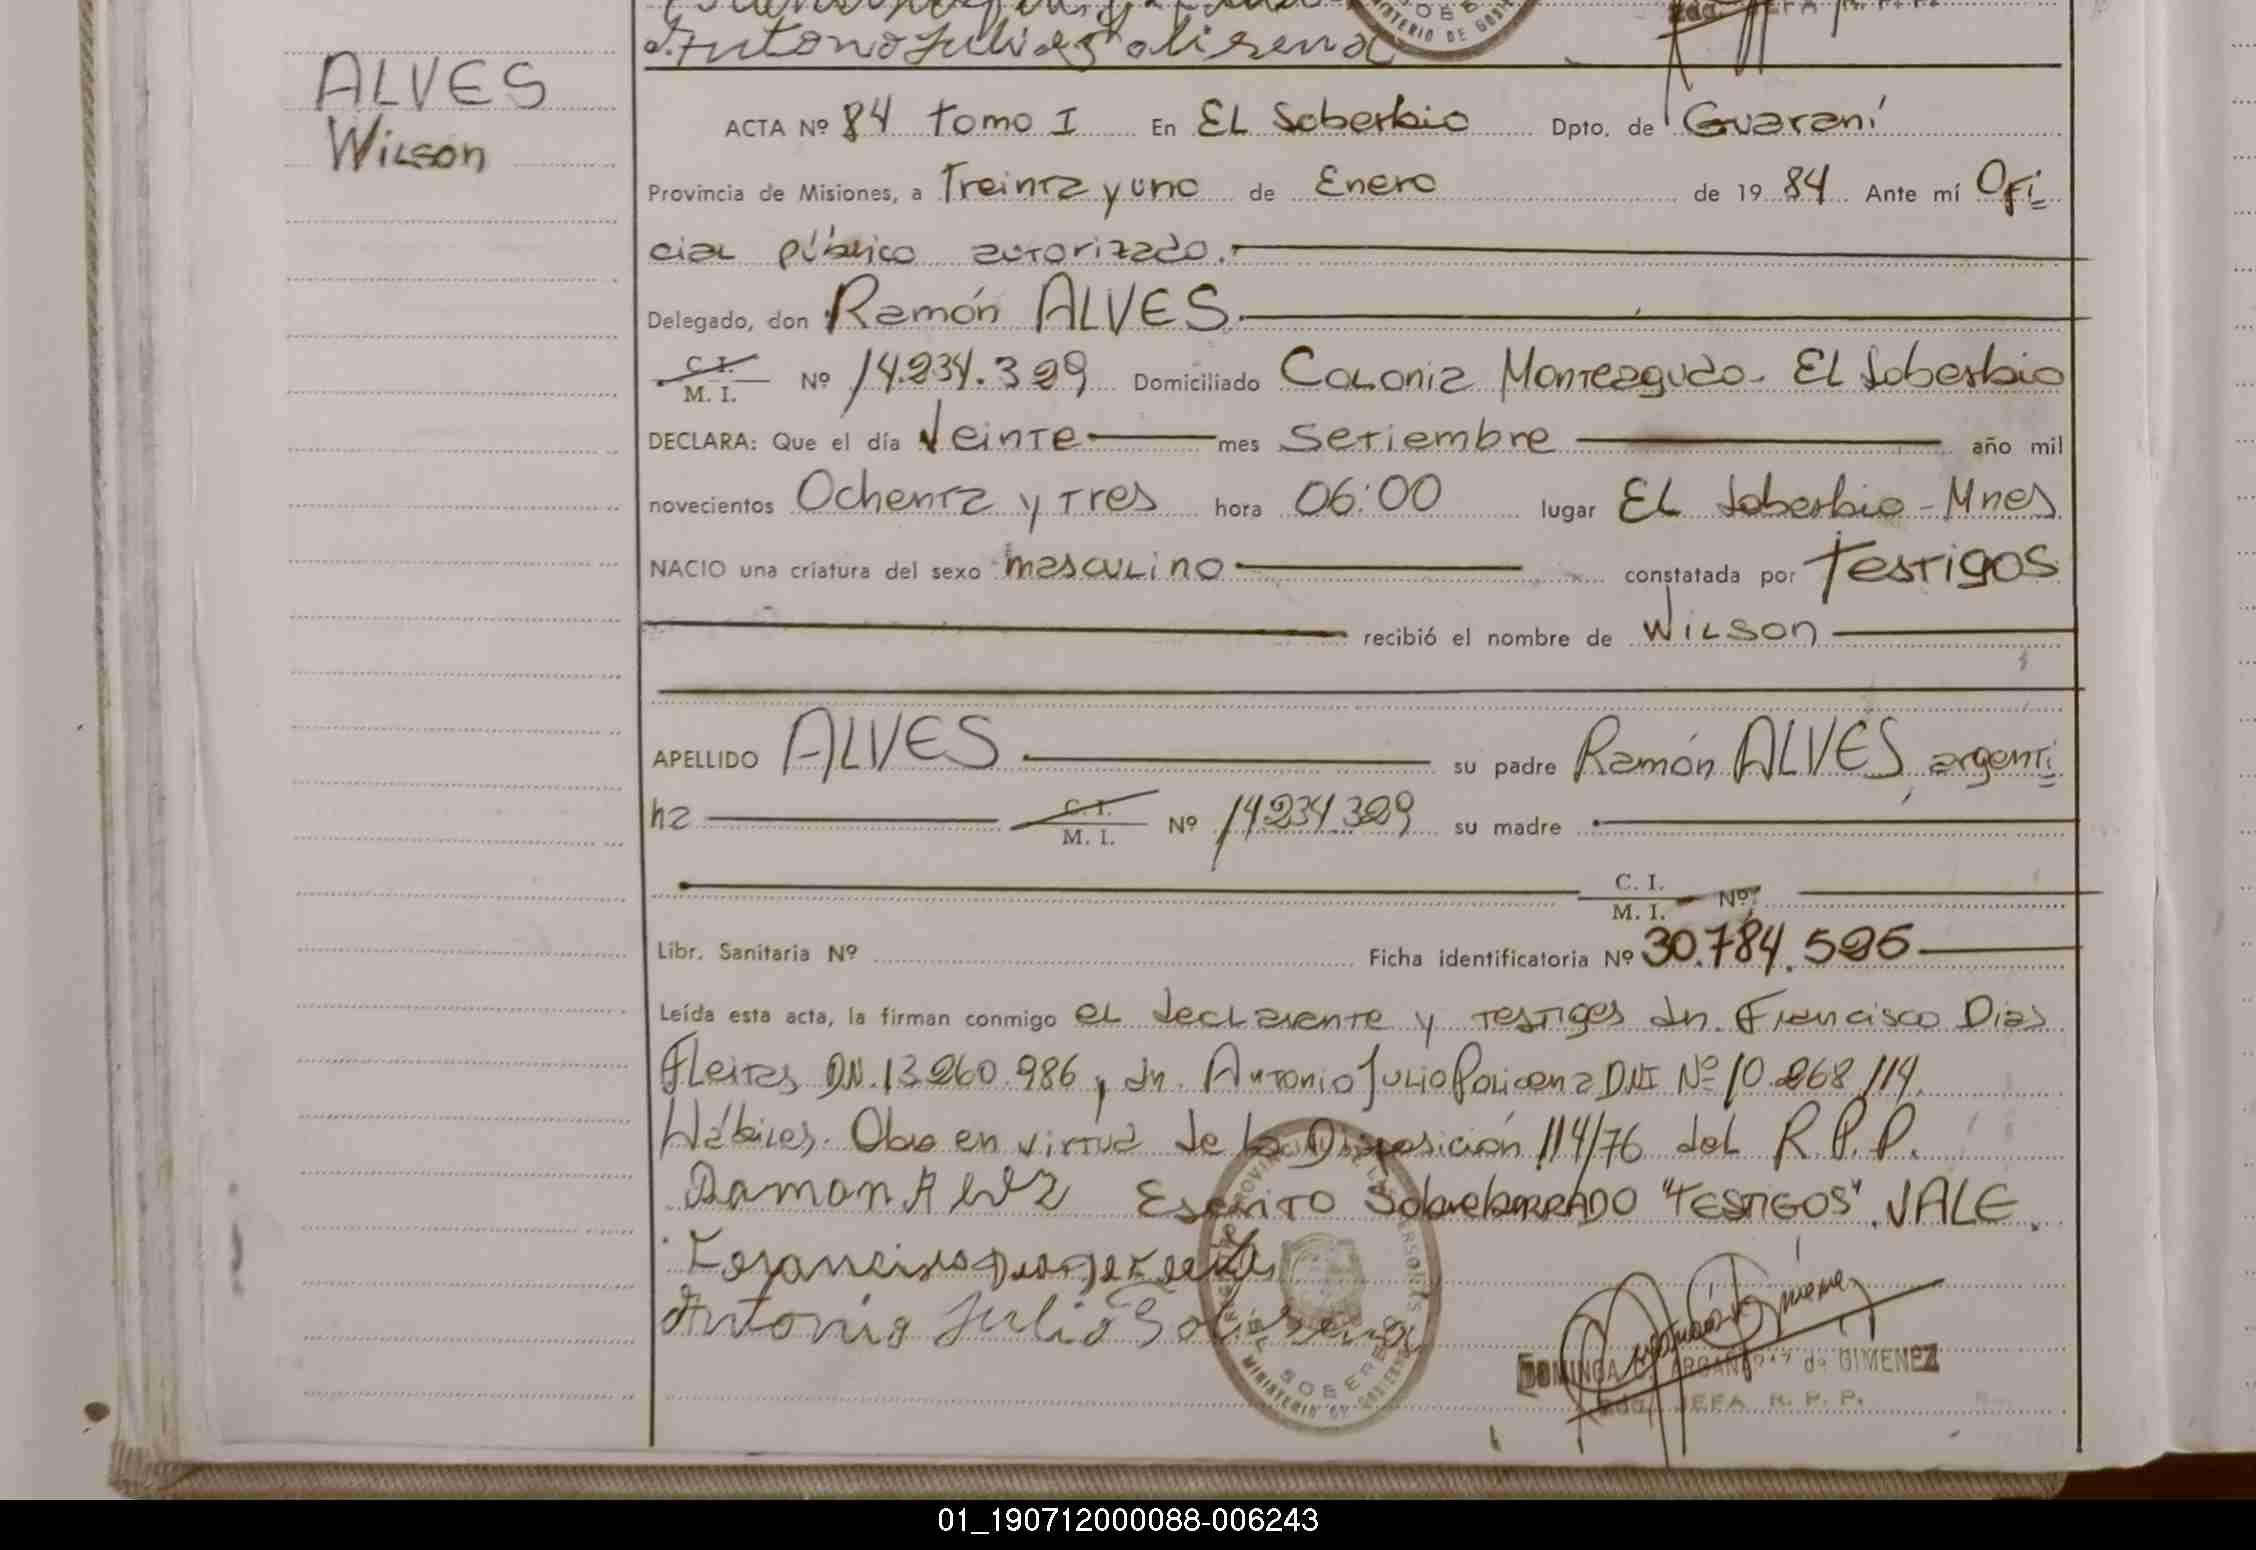 Antonio Julio Polisena
MINISTERIO DE
ALVES
Wilson
ACTA Nº 84 Tomo I En EL Soberbio Dpto. de Guaraní
Provincia de Misiones, a Treinta y uno de Enero de 1984 Ante mí Ofi
cial público autorizado.
Delegado, don Ramón ALVES.
C. I. / M. I. Nº 14.234.329 Domiciliado Colonia Monteagudo - EL Soberbio
DECLARA: Que el día Veinte mes Setiembre año mil
novecientos Ochenta y Tres hora 06:00 lugar EL Soberbio - Mnes
NACIO una criatura del sexo masculino constatada por Testigos
recibió el nombre de Wilson
APELLIDO ALVES su padre Ramón ALVES, argenti
na C. I. / M. I. Nº 14.234.329 su madre
C. I. / M. I. Nº
Libr. Sanitaria Nº Ficha identificatoria Nº 30.784.525
Leída esta acta, la firman conmigo el declarante y testigos dn. Francisco Dias
Fleitas DN. 13.260.986, dn. Antonio Julio Policena DNI Nº 10.268.114.
Hábiles. Obro en virtud de la Disposición 114/76 del R.P.P.
Ramon Alvz Escrito Sobreborrado "TESTIGOS". VALE.
Antonio Julio Polisena
DOMINGA de GIMENEZ
JEFA R. P. P.
01_190712000088-006243